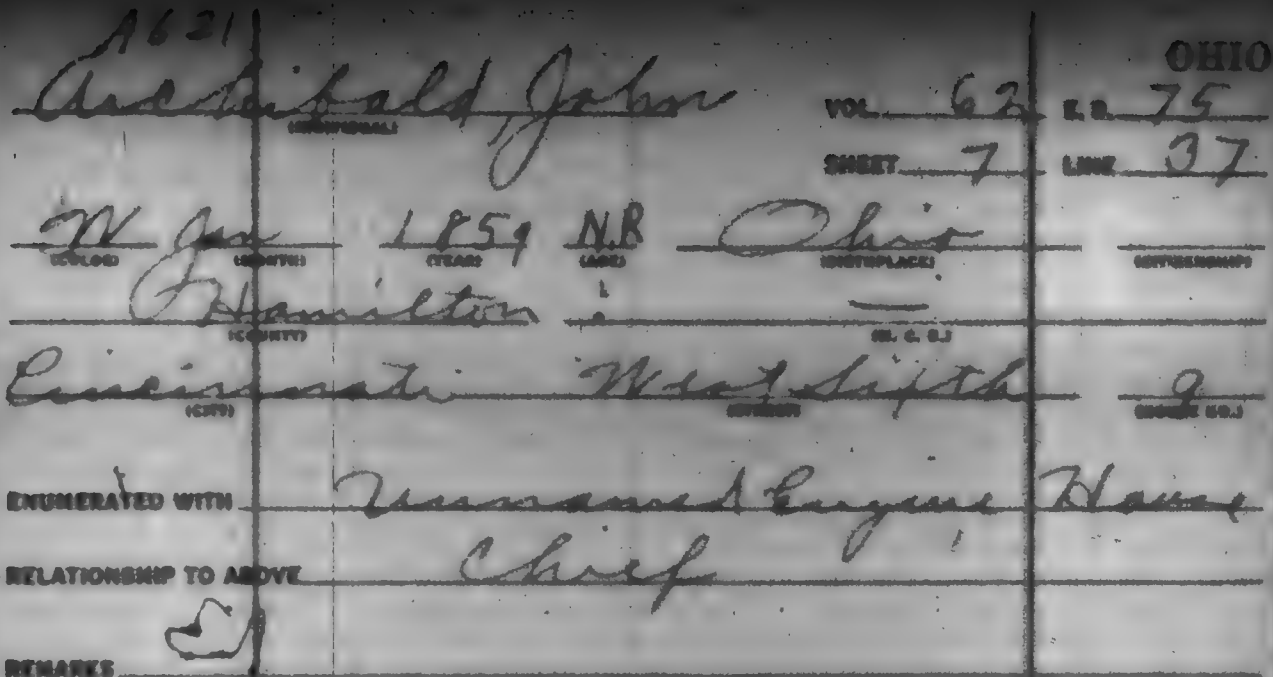 A621
OHIO
Archibald, John
VOL. 62 E. D. 75
(INDIVIDUAL)
SHEET 7 LINE 37
W Jan 1859 N.R Ohio
(COLOR) (MONTH) (YEAR) (AGE) (BIRTHPLACE) (CITIZENSHIP)
Hamilton
(COUNTY) (M. C. D.)
Cincinnati West Sixth 9
(CITY) (STREET) (HOUSE NO.)
ENUMERATED WITH Unnamed Engine House
RELATIONSHIP TO ABOVE Chief
REMARKS